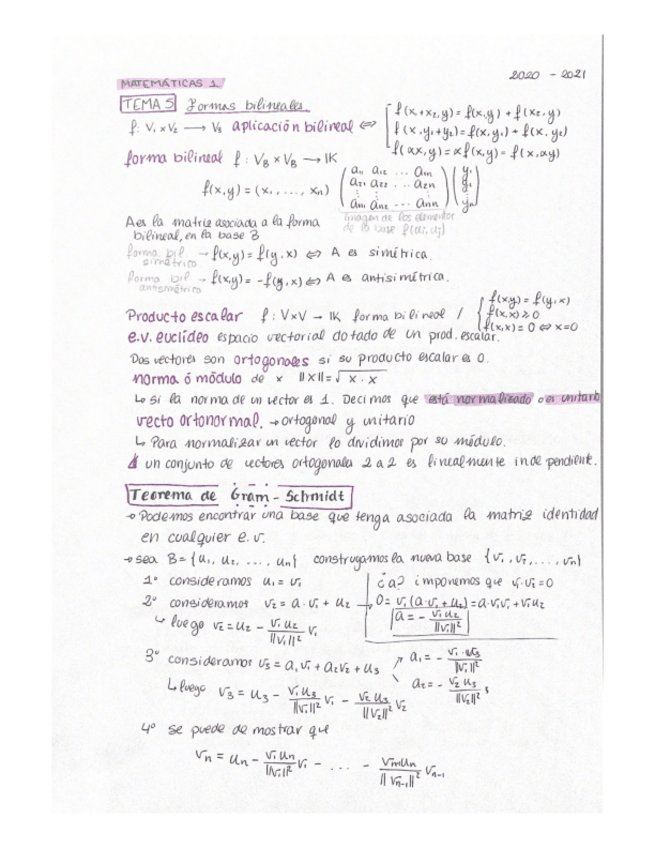 2020 - 2021
MATEMÁTICAS 1.
TEMA 5 Formas bilineales.
f: V₁ x V₂ → V₃ aplicación bilineal ⇔ f(x₁+x₂,y) = f(x,y) + f(x₂,y)
f(x,y₁+y₂) = f(x,y₁) + f(x,y₂)
f(αx,y) = αf(x,y) = f(x,αy)
forma bilineal f: V_B x V_B → IK
f(x,y) = (x₁, ..., xₙ) (a₁₁ a₁₂ ... a₁ₙ) (y₁)
a₂₁ a₂₂ ... a₂ₙ
aₙ₁ aₙ₂ ... aₙₙ yₙ
A es la matriz asociada a la forma
bilineal, en la base B
imagen de los elementos
de la base f(uᵢ,uⱼ)
forma bil simétrica → f(x,y) = f(y,x) ⇔ A es simétrica.
forma bil antisimétrica → f(x,y) = -f(y,x) ⇔ A es antisimétrica.
Producto escalar f: VxV → IK forma bilineal / f(x,y) = f(y,x)
f(x,x) ≥ 0
f(x,x) = 0 ⇔ x=0
e.v. euclídeo espacio vectorial dotado de un prod. escalar.
Dos vectores son ortogonales si su producto escalar es 0.
norma ó módulo de x ||x|| = √x·x
↳ si la norma de un vector es 1. Decimos que está normalizado o es unitario
vecto ortonormal. → ortogonal y unitario
↳ Para normalizar un vector lo dividimos por su módulo.
un conjunto de vectores ortogonales 2 a 2 es linealmente independiente.
Teorema de Gram - Schmidt
→ Podemos encontrar una base que tenga asociada la matriz identidad
en cualquier e.v.
→ sea B = {u₁, u₂, ..., uₙ} construyamos la nueva base {v₁, v₂, ..., vₙ}
1º consideramos u₁ = v₁
¿a? imponemos que v₁·v₂ = 0
2º consideramos v₂ = a·v₁ + u₂ → 0 = v₁(a·v₁ + u₂) = a·v₁v₁ + v₁u₂
↳ luego v₂ = u₂ - v₁u₂/||v₁||² v₁
a = - v₁u₂/||v₁||²
3º consideramos v₃ = a₁v₁ + a₂v₂ + u₃ a₁ = - v₁·u₃/||v₁||²
a₂ = - v₂u₃/||v₂||²
↳ luego v₃ = u₃ - v₁u₃/||v₁||² v₁ - v₂u₃/||v₂||² v₂
4º se puede demostrar que
vₙ = uₙ - v₁uₙ/||v₁||² v₁ - ... - vₙ₋₁uₙ/||vₙ₋₁||² vₙ₋₁